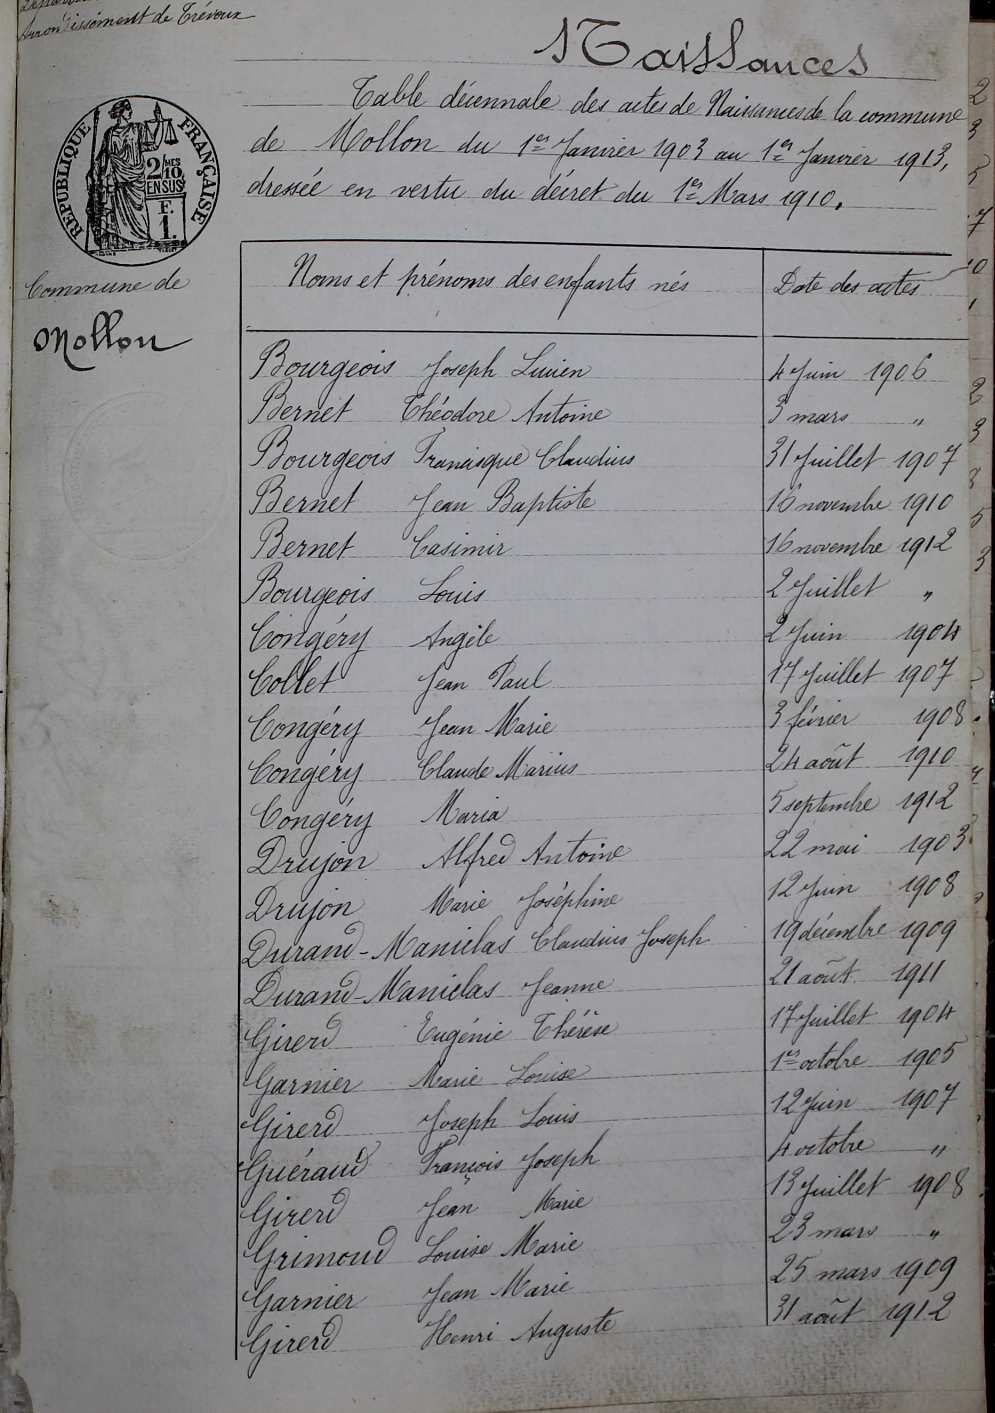 Arrondissement de Trévoux
Naissances
Table décennale des actes de Naissances de la commune
de Mollon du 1er Janvier 1903 au 1er Janvier 1913,
dressée en vertu du décret du 1er Mars 1910.
RÉPUBLIQUE FRANÇAISE
2/10 MES
EN SUS
F.
1.
Commune de
Mollon
Noms et prénoms des enfants nés Date des actes
Bourgeois Joseph Lucien 4 Juin 1906
Bernet Théodore Antoine 3 mars "
Bourgeois Francisque Claudius 31 Juillet 1907
Bernet Jean Baptiste 16 novembre 1910
Bernet Casimir 16 novembre 1912
Bourgeois Louis 2 Juillet "
Congéry Angèle 2 Juin 1904
Collet Jean Paul 17 Juillet 1907
Congéry Jean Marie 3 février 1908
Congéry Claude Marius 24 août 1910
Congéry Maria 5 septembre 1912
Drujon Alfred Antoine 22 mai 1903
Drujon Marie Joséphine 12 Juin 1908
Durand-Maniclas Claudius Joseph 19 décembre 1909
Durand-Maniclas Jeanne 21 août 1911
Girerd Eugénie Thérèse 17 Juillet 1904
Garnier Marie Louise 1er octobre 1905
Girerd Joseph Louis 12 Juin 1907
Guéraud François Joseph 4 octobre "
Girerd Jean Marie 13 Juillet 1908
Grimoud Louise Marie 23 mars "
Garnier Jean Marie 25 mars 1909
Girerd Henri Auguste 31 août 1912